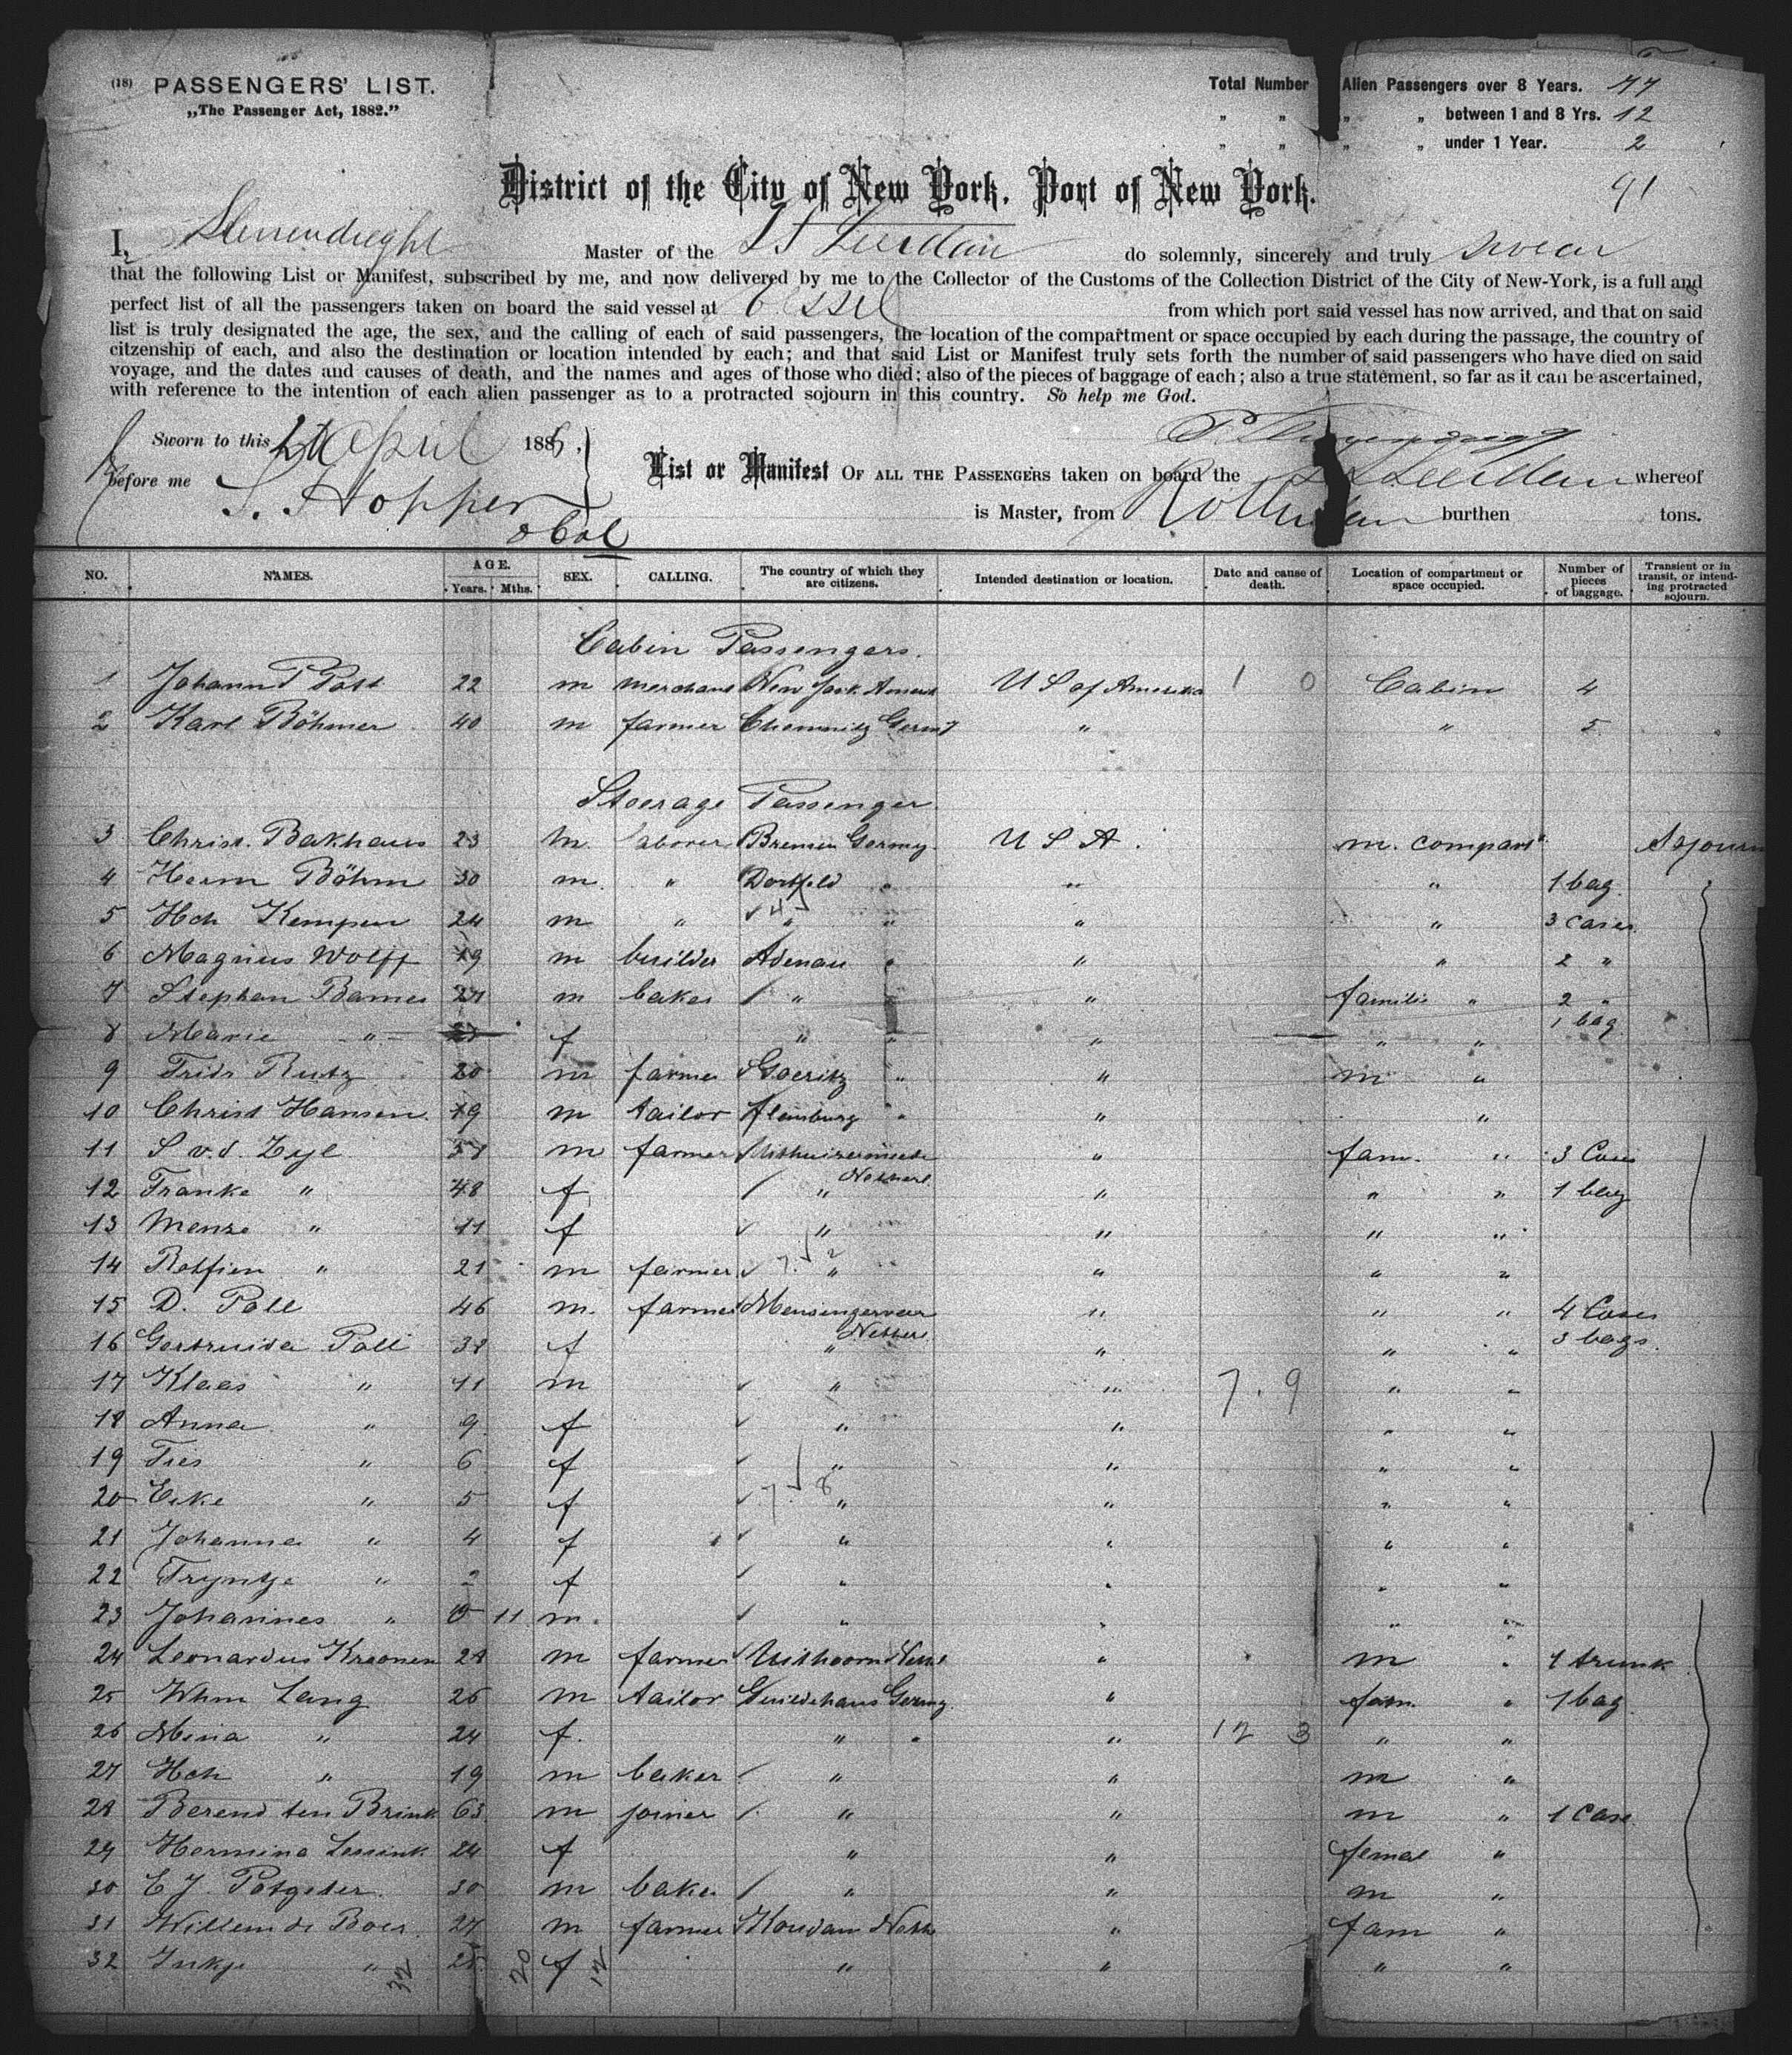 (18) PASSENGERS' LIST.
„The Passenger Act, 1882.”
Total Number Alien Passengers over 8 Years. 77
„ „ „ „ between 1 and 8 Yrs. 12
„ „ „ „ under 1 Year. 2
91
District of the City of New York, Port of New York.
I, Master of the do solemnly, sincerely and truly swear
that the following List or Manifest, subscribed by me, and now delivered by me to the Collector of the Customs of the Collection District of the City of New-York, is a full and
perfect list of all the passengers taken on board the said vessel at from which port said vessel has now arrived, and that on said
list is truly designated the age, the sex, and the calling of each of said passengers, the location of the compartment or space occupied by each during the passage, the country of
citzenship of each, and also the destination or location intended by each; and that said List or Manifest truly sets forth the number of said passengers who have died on said
voyage, and the dates and causes of death, and the names and ages of those who died; also of the pieces of baggage of each; also a true statement, so far as it can be ascertained,
with reference to the intention of each alien passenger as to a protracted sojourn in this country. So help me God.
Sworn to this April 188
before me S. Hopper
List or Manifest OF ALL THE PASSENGERS taken on board the whereof
is Master, from burthen tons.
NO. NAMES. AGE. Years. Mths. SEX. CALLING. The country of which they are citizens. Intended destination or location. Date and cause of death. Location of compartment or space occupied. Number of pieces of baggage. Transient or in transit, or intending protracted sojourn.
Cabin Passengers.
1 Johann Pott 22 m merchant New York U S of Amerika 1 0 Cabin 4
2 Karl Böhmer 40 m farmer Chemnitz " " 5
Steerage Passenger
3 Christ. Bakhaus 23 m. laborer Bremen Germy. U S A. m. compart Sojourn
4 Herm Böhm 30 m. " " " " 1 bag.
5 Hch Kempen 24 m " " " " " 3 cases.
6 Magnus Wolff 19 m builder Adenau " " " 2 "
7 Stephan Bames 27 m baker " " " familie " 2 "
1 bag
8 Marie " f " " " " "
9 Fridr Rutz 20 m farmer Goeritz " " m "
10 Christ Hansen 19 m tailor Flensburg " " "
11 S v.d. Zyl m farmer " fam. " 3 Cases
12 Franke " 48 f " Netherl " " " 1 bag
13 Menze " 11 f " " " "
14 " 21 m farmer " " " "
15 D. Poll 46 m. farmer " " " 4 Cases
16 Gertruida Poll 38 f " Netherl " " " 3 bags.
17 Klaas " 11 m " " 7. 9 " "
18 Anna " 9 f " " " "
19 Ties " 6 f " " " "
20 " 5 f " " " "
21 Johanna " 4 f " " " "
22 Tryntje " 2 f " " " "
23 Johannes " 0 11 m. " " " "
24 Leonardus Kroonen 28 m farmer Uithoorn " m " 1 trunk
25 Whm Lang 26 m tailor Guildehaus Germy. " fam. " 1 bag
26 Mina " 24 f. " " " 12 3 " "
27 Hch " 19 m baker " " m "
28 Berend ten Brink 63 m joiner " " m " 1 Case
29 Hermina 24 f " " femal "
30 E J. Potgeter. 30 m baker " " m "
31 Willem de Boer. 27 m farmer Koudum Neth " fam "
32 " f " " " "
32 20 12